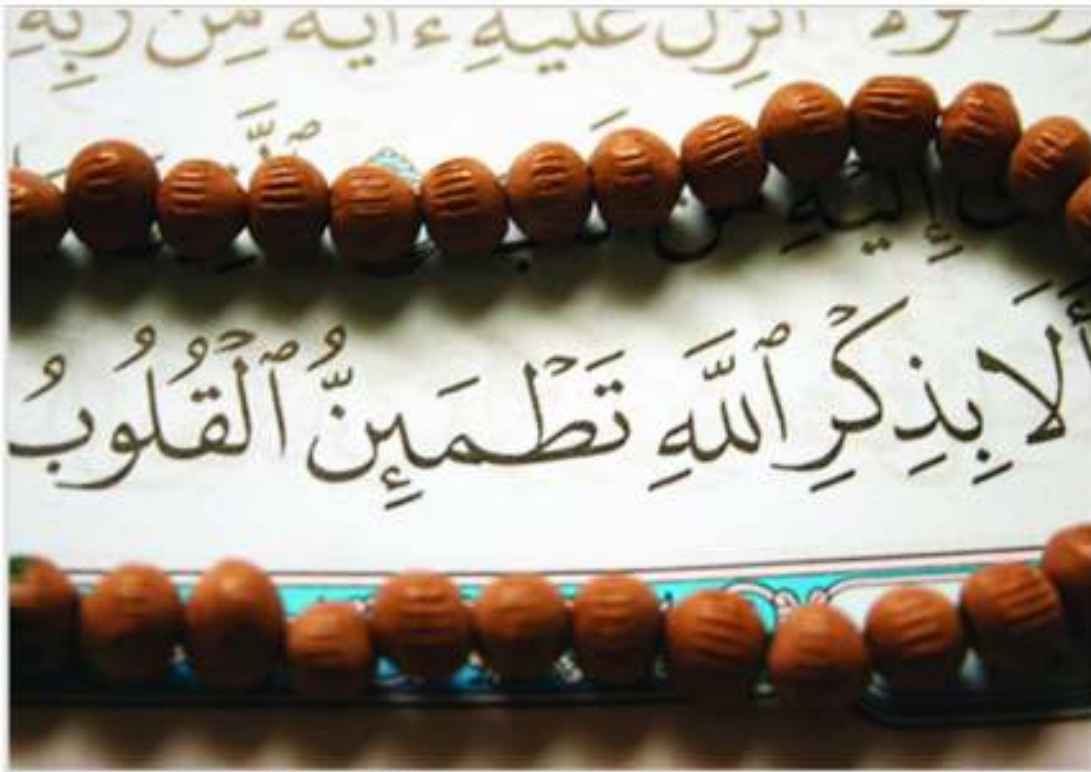 أنزل عليه ءاية من ربه
إليه من
أَلَا بِذِكْرِ ٱللَّهِ تَطْمَئِنُّ ٱلْقُلُوبُ